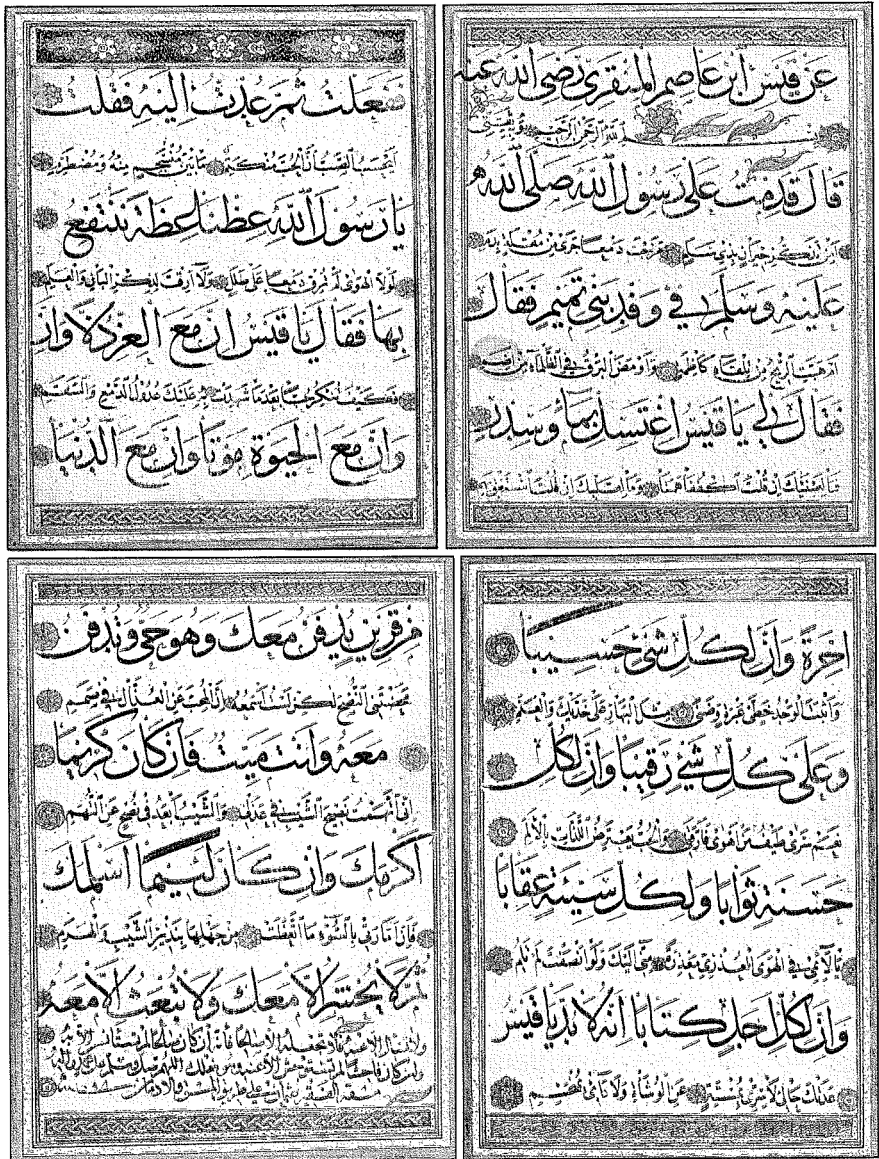 عن قيس ابن عاصم المنقري رضي الله عنه
بسم الله الرحمن الرحيم
قال قدمت على رسول الله صلى الله
امن تذكر جيران بذي سلم مزجت دمعا جرى من مقلة بدم
عليه وسلم في وفد بني تميم فقال
ام هبت الريح من تلقاء كاظمة واومض البرق في الظلماء من اضم
فقال لي يا قيس اغتسل بماء وسدر
فما لعينيك ان قلت اكففا همتا وما لقلبك ان قلت استفق يهم
ففعلت ثم عدت اليه فقلت
ايحسب الصب ان الحب منكتم ما بين منسجم منه ومضطرم
يا رسول الله عظنا عظة ننتفع
لولا الهوى لم ترق دمعا على طلل ولا ارقت لذكر البان والعلم
بها فقال يا قيس ان مع العز ذلا وان
فكيف تنكر حبا بعد ما شهدت به عليك عدول الدمع والسقم
وان مع الحيوة موتا وان مع الدنيا
اخرة وان لكل شئ حسيبا
واثبت الوجد خطي عبرة وضنى مثل البهار على خديك والعنم
وعلى كل شئ رقيبا وان لكل
نعم سرى طيف من اهوى فارقني والحب يعترض اللذات بالالم
حسنة ثوابا ولكل سيئة عقابا
يا لائمي في الهوى العذري معذرة مني اليك ولو انصفت لم تلم
وان لكل اجل كتابا انه لا بد يا قيس
عدتك حالي لا سري بمستتر عن الوشاة ولا دائي بمنحسم
من قرين يدفن معك وهو حي وتدفن
محضتني النصح لكن لست اسمعه ان المحب عن العذال في صمم
معه وانت ميت فان كان كريما
اني اتهمت نصيح الشيب في عذلي والشيب ابعد في نصح عن التهم
اكرمك وان كان لئيما اسلمك
فان امارتي بالسوء ما اتعظت من جهلها بنذير الشيب والهرم
ثم لا يحشر الا معك ولا تبعث الا معه
ولا تسأل الا عنه فلا تجعله الا صالحا فانه ان كان صالحا لم تستأنس الا به
وان كان فاحشا لم تستوحش الا منه وهو فعلك